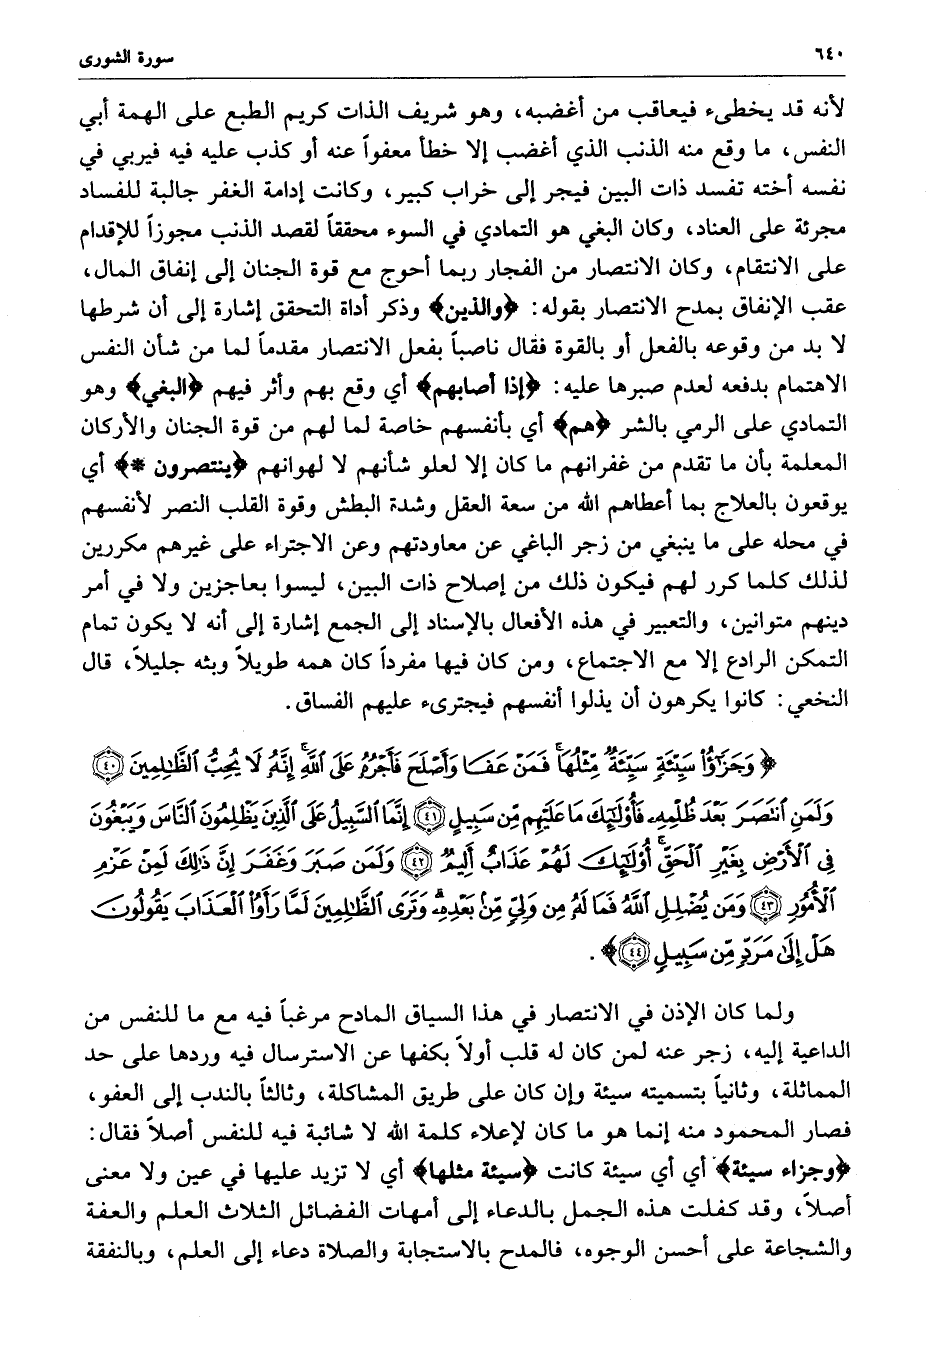 ٦٤٠ سورة الشورى
لأنه قد يخطىء فيعاقب من أغضبه، وهو شريف الذات كريم الطبع على الهمة أبي
النفس، ما وقع منه الذنب الذي أغضب إلا خطأ معفواً عنه أو كذب عليه فيه فيربي في
نفسه أخته تفسد ذات البين فيجر إلى خراب كبير، وكانت إدامة الغفر جالبة للفساد
مجرئة على العناد، وكان البغي هو التمادي في السوء محققاً لقصد الذنب مجوزاً للإقدام
على الانتقام، وكان الانتصار من الفجار ربما أحوج مع قوة الجنان إلى إنفاق المال،
عقب الإنفاق بمدح الانتصار بقوله: ﴿والذين﴾ وذكر أداة التحقق إشارة إلى أن شرطها
لا بد من وقوعه بالفعل أو بالقوة فقال ناصباً بفعل الانتصار مقدماً لما من شأن النفس
الاهتمام بدفعه لعدم صبرها عليه: ﴿إذا أصابهم﴾ أي وقع بهم وأثر فيهم ﴿البغي﴾ وهو
التمادي على الرمي بالشر ﴿هم﴾ أي بأنفسهم خاصة لما لهم من قوة الجنان والأركان
المعلمة بأن ما تقدم من غفرانهم ما كان إلا لعلو شأنهم لا لهوانهم ﴿ينتصرون *﴾ أي
يوقعون بالعلاج بما أعطاهم الله من سعة العقل وشدة البطش وقوة القلب النصر لأنفسهم
في محله على ما ينبغي من زجر الباغي عن معاودتهم وعن الاجتراء على غيرهم مكررين
لذلك كلما كرر لهم فيكون ذلك من إصلاح ذات البين، ليسوا بعاجزين ولا في أمر
دينهم متوانين، والتعبير في هذه الأفعال بالإسناد إلى الجمع إشارة إلى أنه لا يكون تمام
التمكن الرادع إلا مع الاجتماع، ومن كان فيها مفرداً كان همه طويلاً وبثه جليلاً، قال
النخعي: كانوا يكرهون أن يذلوا أنفسهم فيجترىء عليهم الفساق.
﴿وَجَزَٰٓؤُا۟ سَيِّئَةٍ سَيِّئَةٌ مِّثْلُهَا ۖ فَمَنْ عَفَا وَأَصْلَحَ فَأَجْرُهُۥ عَلَى ٱللَّهِ ۚ إِنَّهُۥ لَا يُحِبُّ ٱلظَّٰلِمِينَ ٤٠
وَلَمَنِ ٱنتَصَرَ بَعْدَ ظُلْمِهِۦ فَأُو۟لَٰٓئِكَ مَا عَلَيْهِم مِّن سَبِيلٍ ٤١ إِنَّمَا ٱلسَّبِيلُ عَلَى ٱلَّذِينَ يَظْلِمُونَ ٱلنَّاسَ وَيَبْغُونَ
فِى ٱلْأَرْضِ بِغَيْرِ ٱلْحَقِّ ۚ أُو۟لَٰٓئِكَ لَهُمْ عَذَابٌ أَلِيمٌ ٤٢ وَلَمَن صَبَرَ وَغَفَرَ إِنَّ ذَٰلِكَ لَمِنْ عَزْمِ
ٱلْأُمُورِ ٤٣ وَمَن يُضْلِلِ ٱللَّهُ فَمَا لَهُۥ مِن وَلِىٍّ مِّنۢ بَعْدِهِۦ ۗ وَتَرَى ٱلظَّٰلِمِينَ لَمَّا رَأَوُا۟ ٱلْعَذَابَ يَقُولُونَ
هَلْ إِلَىٰ مَرَدٍّ مِّن سَبِيلٍ ٤٤﴾.
ولما كان الإذن في الانتصار في هذا السياق المادح مرغباً فيه مع ما للنفس من
الداعية إليه، زجر عنه لمن كان له قلب أولاً بكفها عن الاسترسال فيه وردها على حد
المماثلة، وثانياً بتسميته سيئة وإن كان على طريق المشاكلة، وثالثاً بالندب إلى العفو،
فصار المحمود منه إنما هو ما كان لإعلاء كلمة الله لا شائبة فيه للنفس أصلاً فقال:
﴿وجزاء سيئة﴾ أي أي سيئة كانت ﴿سيئة مثلها﴾ أي لا تزيد عليها في عين ولا معنى
أصلاً، وقد كفلت هذه الجمل بالدعاء إلى أمهات الفضائل الثلاث العلم والعفة
والشجاعة على أحسن الوجوه، فالمدح بالاستجابة والصلاة دعاء إلى العلم، وبالنفقة